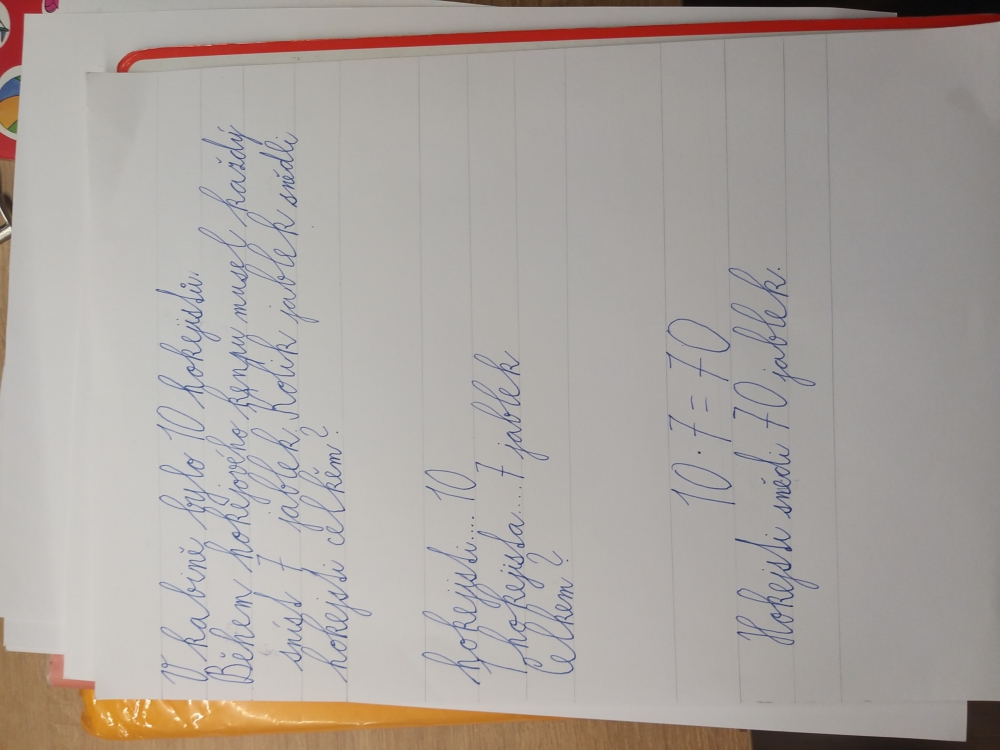 V kabině bylo 10 hokejistů.
Během hokejového kempu musel každý
sníst 7 jablek. Kolik jablek snědli
hokejisti celkěm?
hokejisti.... 10
1 hokejista.... 7 jablek
Celkem?
10 · 7 = 70
Hokejisti snědi 70 jablek.